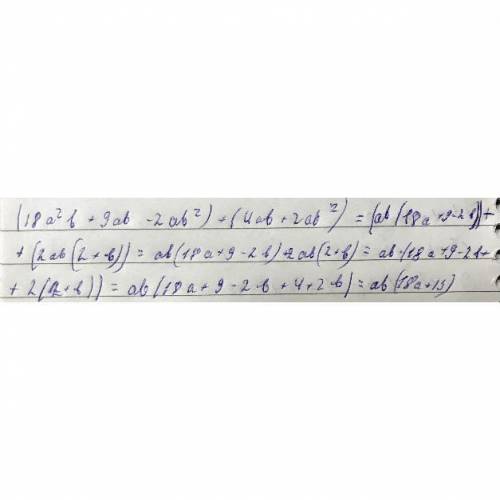 (18a²b + 9ab - 2ab²) + (4ab + 2ab²) = (ab(18a+9-2b))+
+ (2ab(2+b)) = ab(18a+9-2b)+2ab(2+b) = ab·(18a+9-2b+
+ 2(2+b)) = ab(18a+9-2b+4+2b) = ab(18a+13)